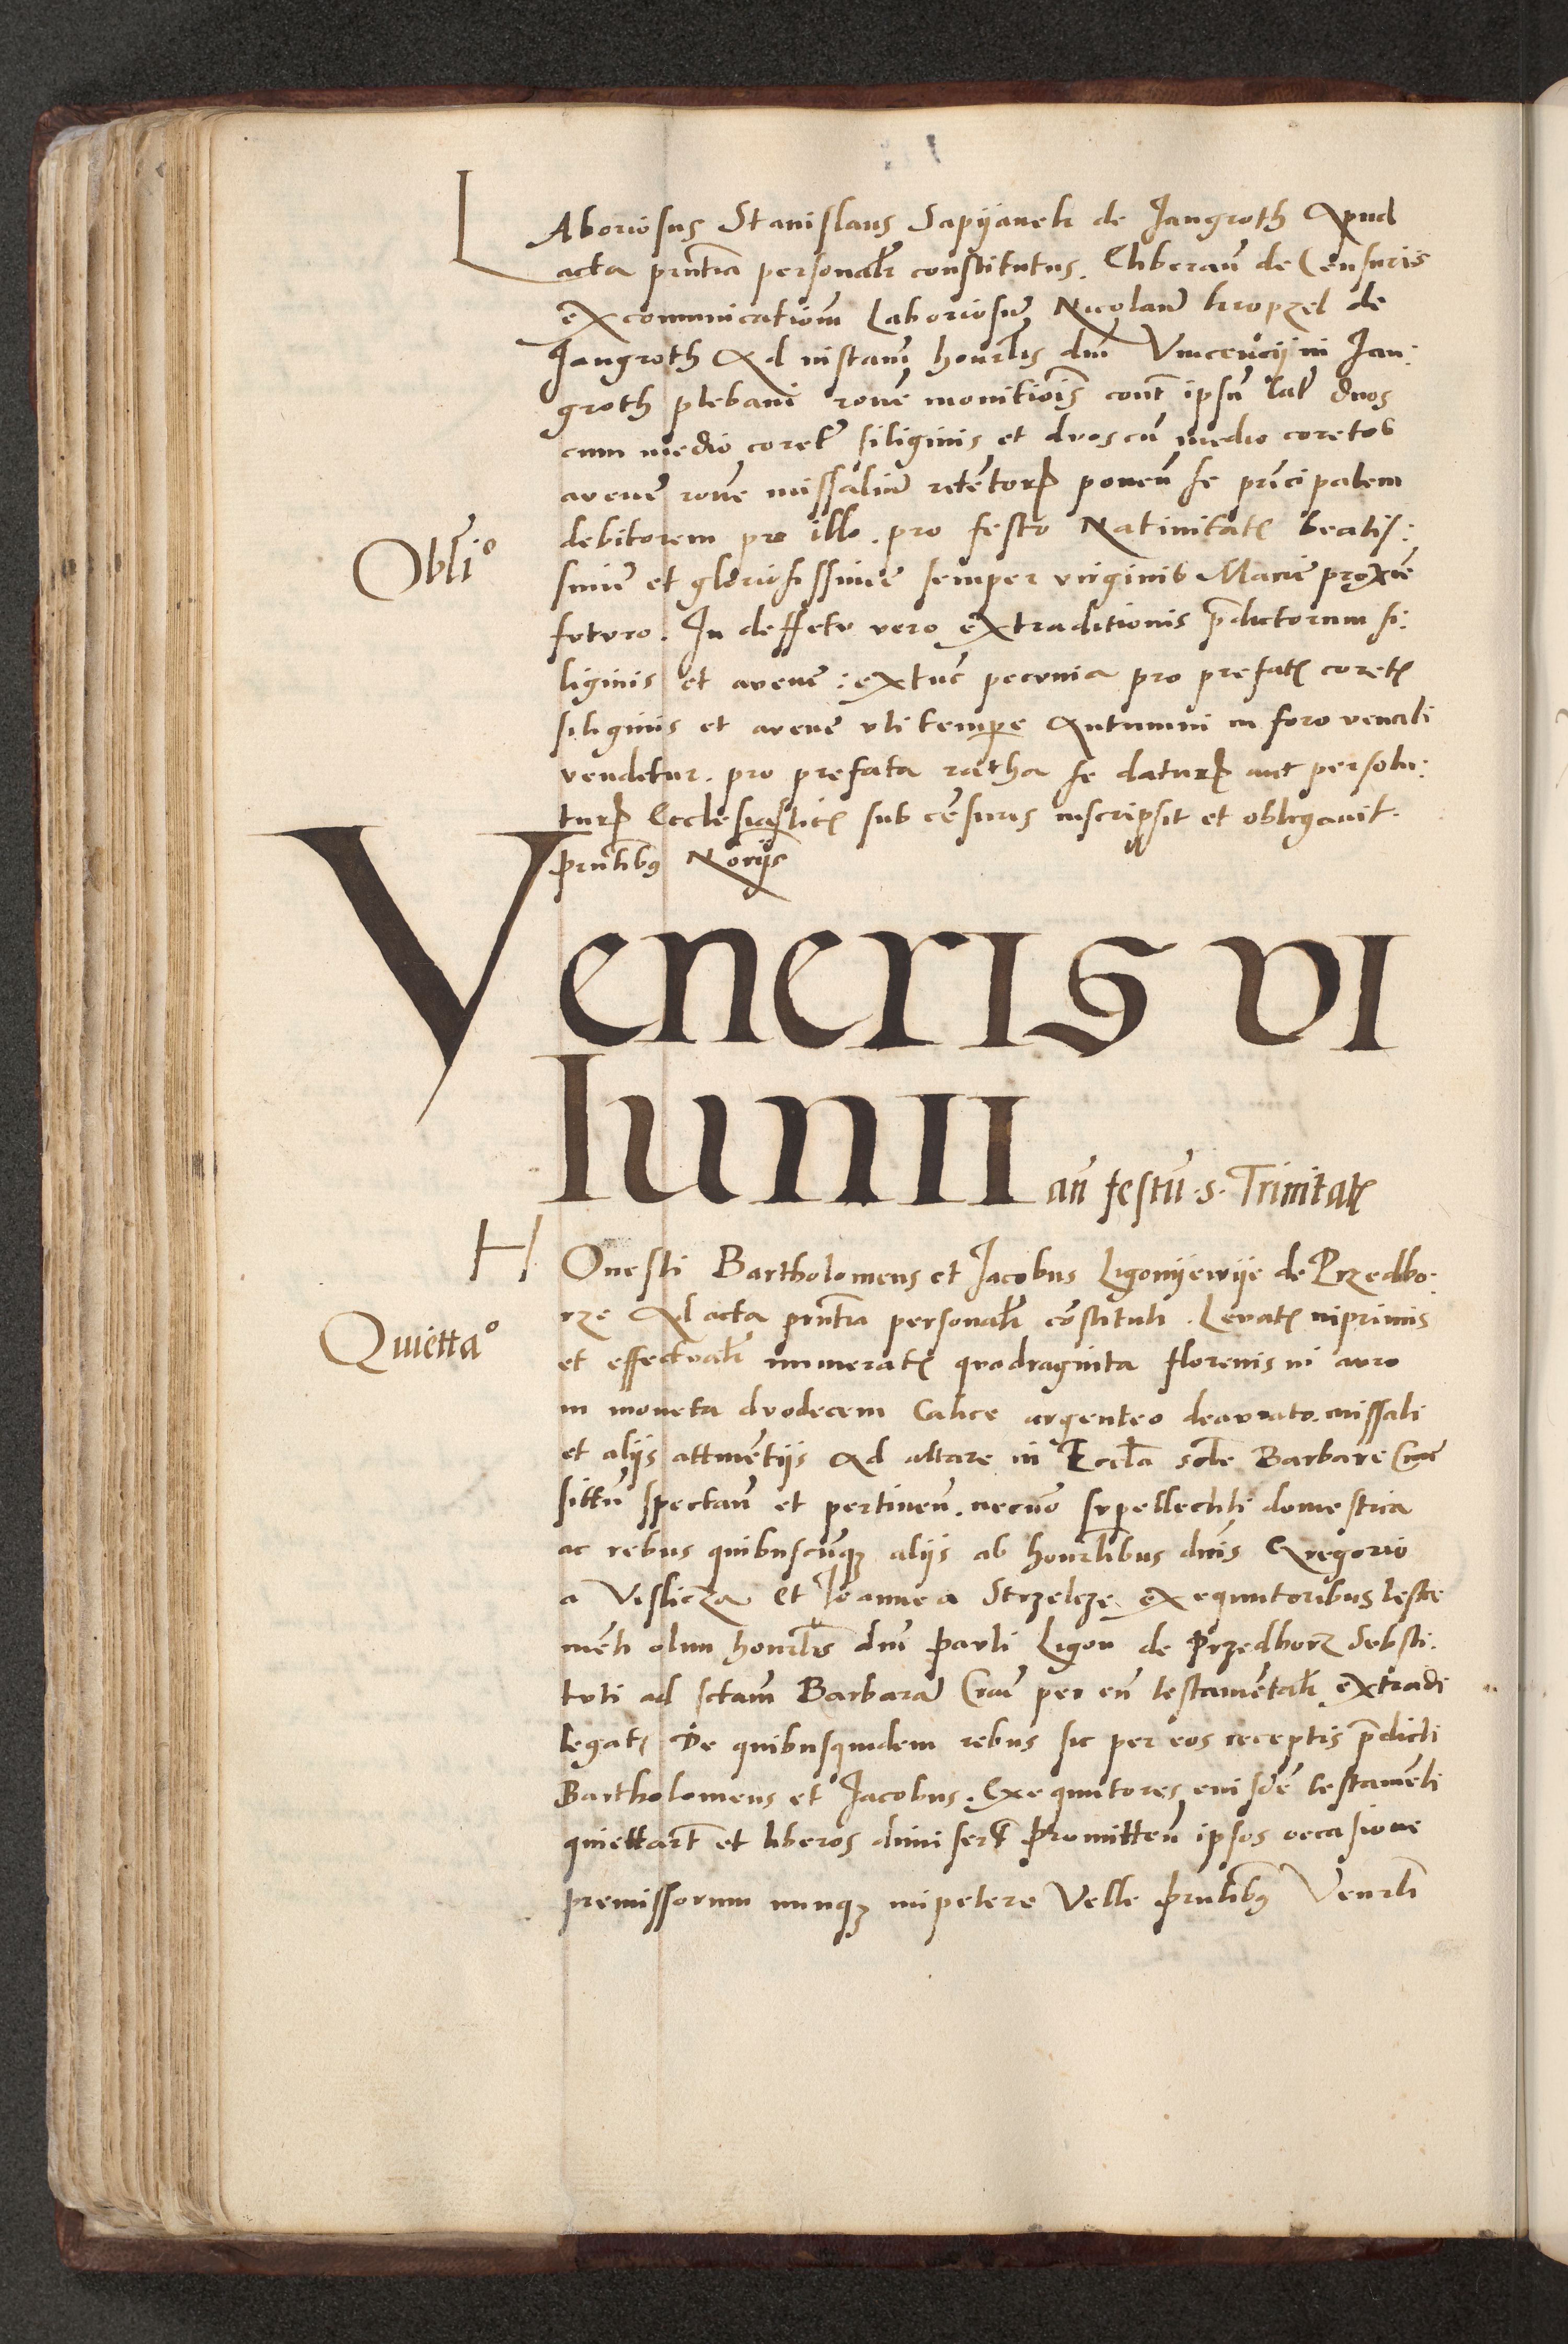 LAboriosus Stanislaus Sapijanek de Jangroth Apud
acta pńtia personalr constitutus. Eliberań de Censuris
excomunicationũ Laboriosũ Nicolaũ kropzel de
Jangroth Ad instań honrlis dnĩ Vincencij in Jan:
groth plebani rone monitiois cont ipsũ lat duos
cum medio coret siliginis et duos cũ medio coretos
avene rone missaliũ retentorꝝ poneń se principalem
Obliº
debitorem pro illo. pro festo Natiuitatꝭ beatis:
sime et gloriosissime semper virginis Marie proxie
futuro. In deffetu vero extraditionis pdictorum si:
liginis et avene: extunc pecunia pro prefatꝭ coretꝭ
siliginis et avene vti tempe Autumni in foro venali
vendetur. pro prefata ratha se daturꝝ aut persolu:
turꝝ Ecclesiasticꝭ sub censuris inscripsit et obligauit.
pńtibus Norijs
Veneris VI
Iunii añ festũ .s. Trinitatꝭ
HOnesti Bartholomeus et Jacobus Ligonijewije de Przedbo:
Quiettaº
rze Ad acta pńtia personalr constituti. Levatꝭ inprimis
et effectualr numeratꝭ quadraginta florenis in auro
in moneta duodecem Calice argenteo deaurato. missali
et alijs attinentijs Ad altare in Eccla scte Barbare Crac
sittũ spectań et pertineń. necnõ supellectili domestica
ac rebus quibuscunqꝫ alijs ab honrlibus dnis Gregorio
a Visliczia Et Joanne a Strzelcze exequutoribus testa
menti olim honrlis dnĩ Pauli Ligon de Przedborz Substi.
tuti ad sctam Barbarã Crac per eũ testamentalr extradi
legatꝭ De quibusquidem rebus sic per eos receptis pdicti
Bartholomeus et Jacobus. Exequutores eiusde testamenti
quiettart et liberos dimisert Promitteń ipsos occasione
premissorum nunqꝫ impetere Velle pńtibus Venrli